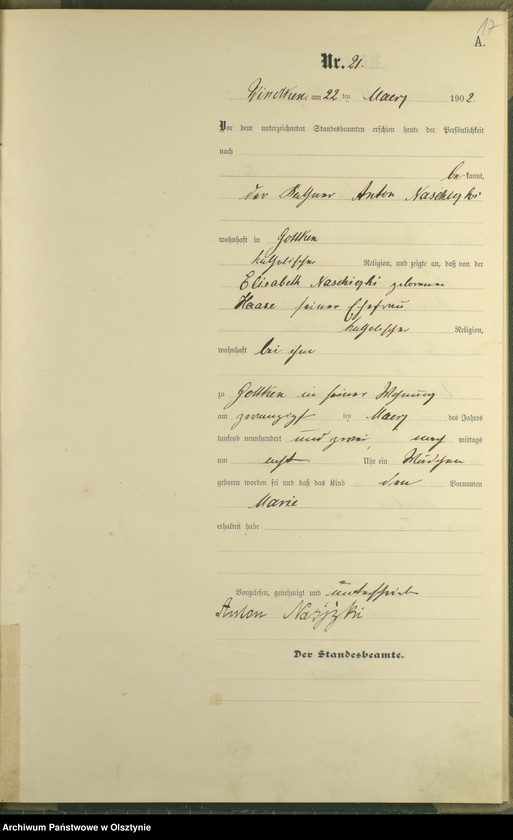 17
A.
Nr. 21.
Windtken, am 22 ten Maerz 1902.
Vor dem unterzeichneten Standesbeamten erschien heute der Persönlichkeit
nach
bekannt,
der Käthner Anton
wohnhaft in Gottken
katholischer Religion, und zeigte an, daß von der
Elisabeth geborenen
Haase seiner Ehefrau
katholischer Religion,
wohnhaft bei ihm
zu Gottken in seiner Wohnung
am zwanzigsten Maerz des Jahres
tausend neunhundert und zwei nachmittags
um acht Uhr ein Mädchen
geboren worden sei und daß das Kind den Vornamen
Marie
erhalten habe
Vorgelesen, genehmigt und unterschrieben
Anton
Der Standesbeamte.
Archiwum Państwowe w Olsztynie